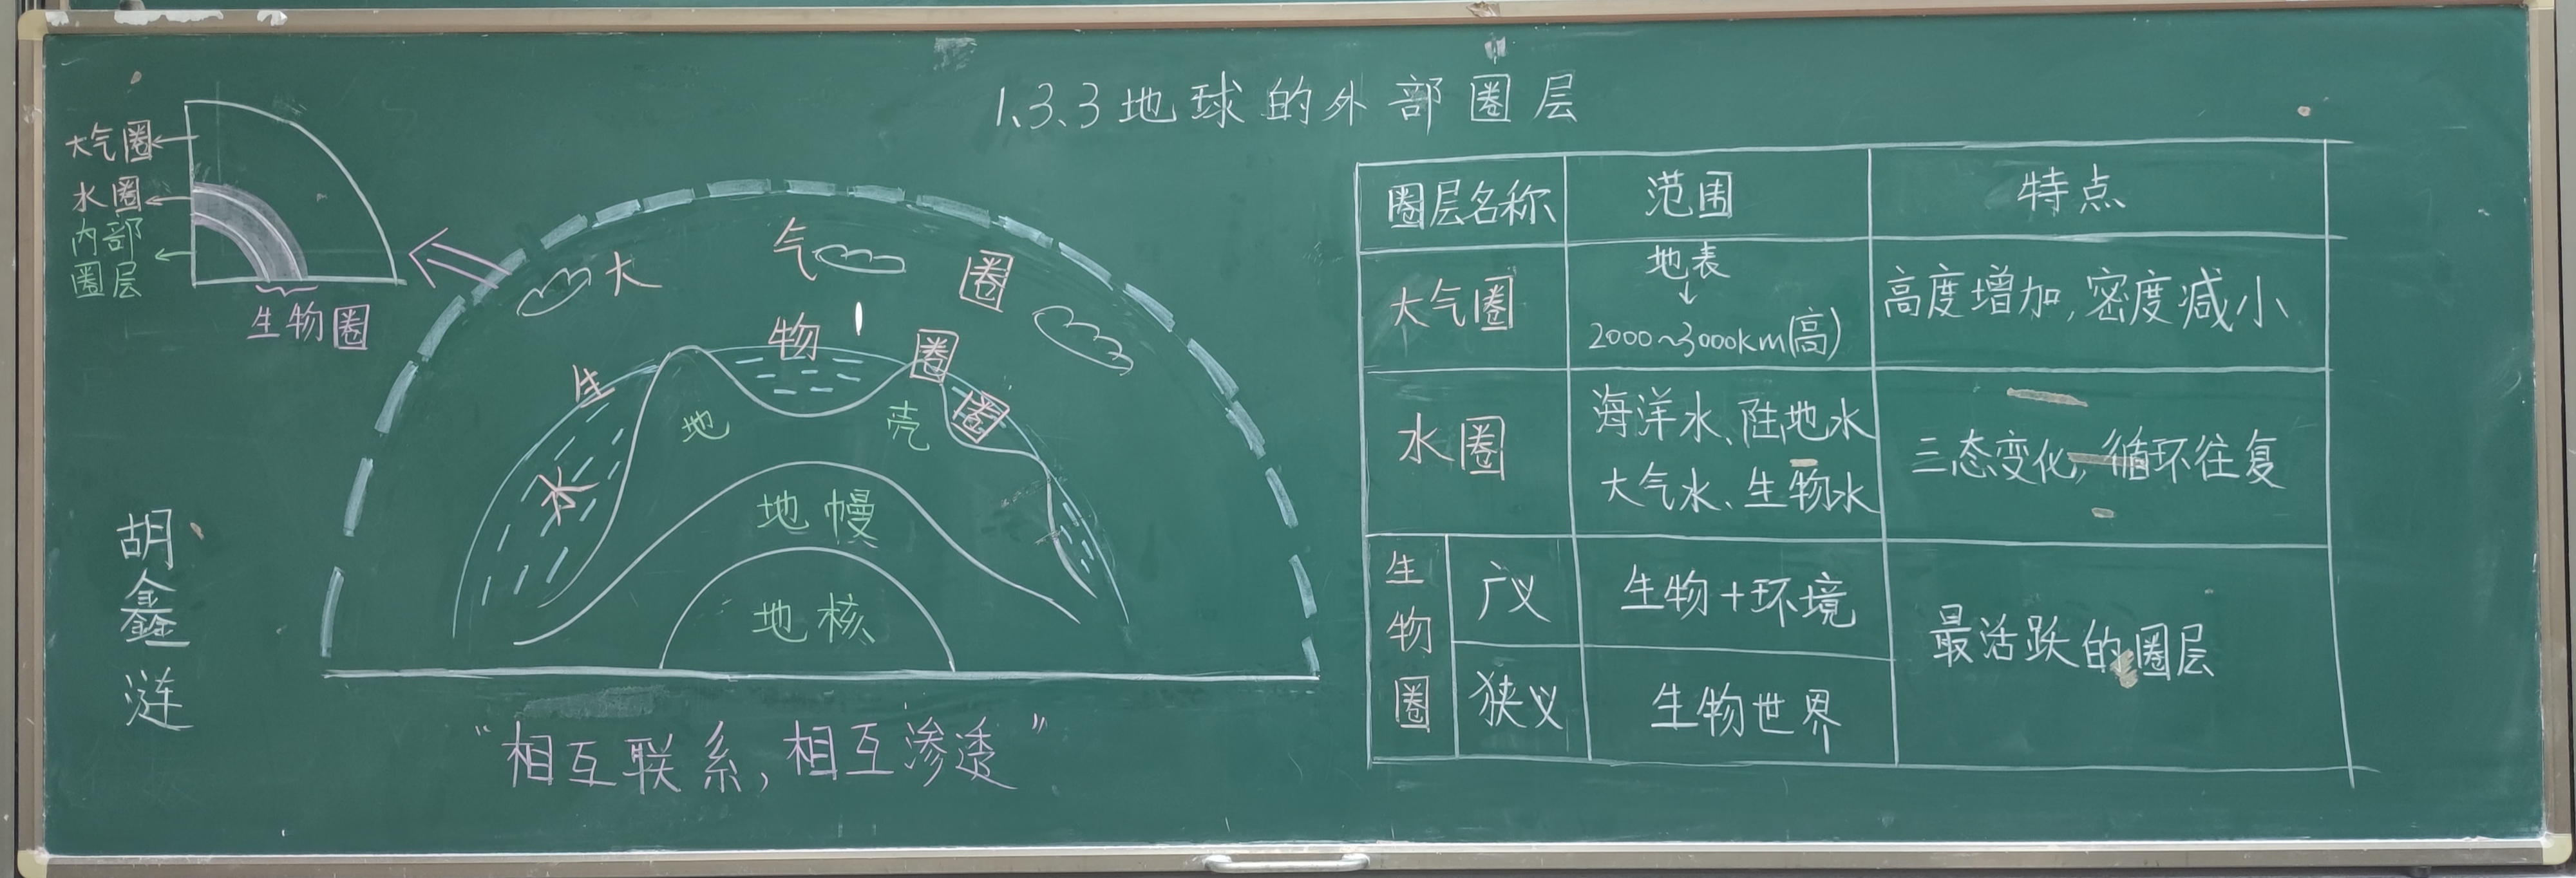 1.3.3地球的外部圈层
大气圈
水圈
内部
圈层
生物圈
大气圈
生物圈
水圈
地壳
地幔
地核
“相互联系，相互渗透”
胡鑫涟
圈层名称 范围 特点
大气圈 地表
↓
2000~3000km(高) 高度增加，密度减小
水圈 海洋水、陆地水
大气水、生物水 三态变化，循环往复
生物圈 广义 生物+环境 最活跃的圈层
狭义 生物世界